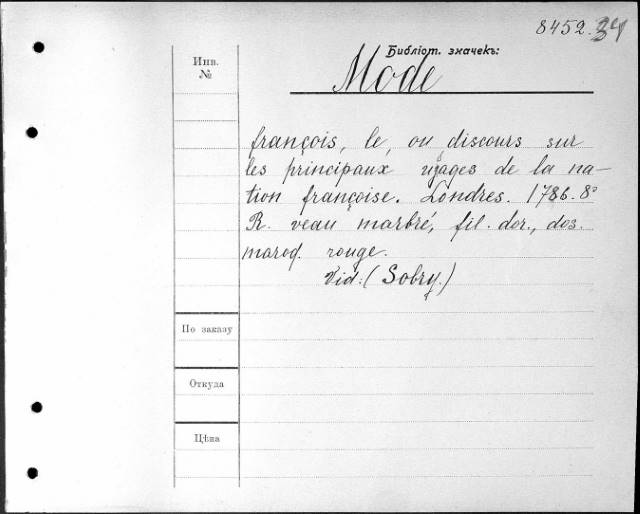 8452. 34
Библіот. значекъ:
Инв.
№
Mode
françois, le, ou discours sur
les principaux usages de la na-
tion françoise. Londres. 1786. 8°
R. veau marbré, fil. dor., dos.
maroq. rouge.
Vid: (Sobry.)
По заказу
Откуда
Цѣна